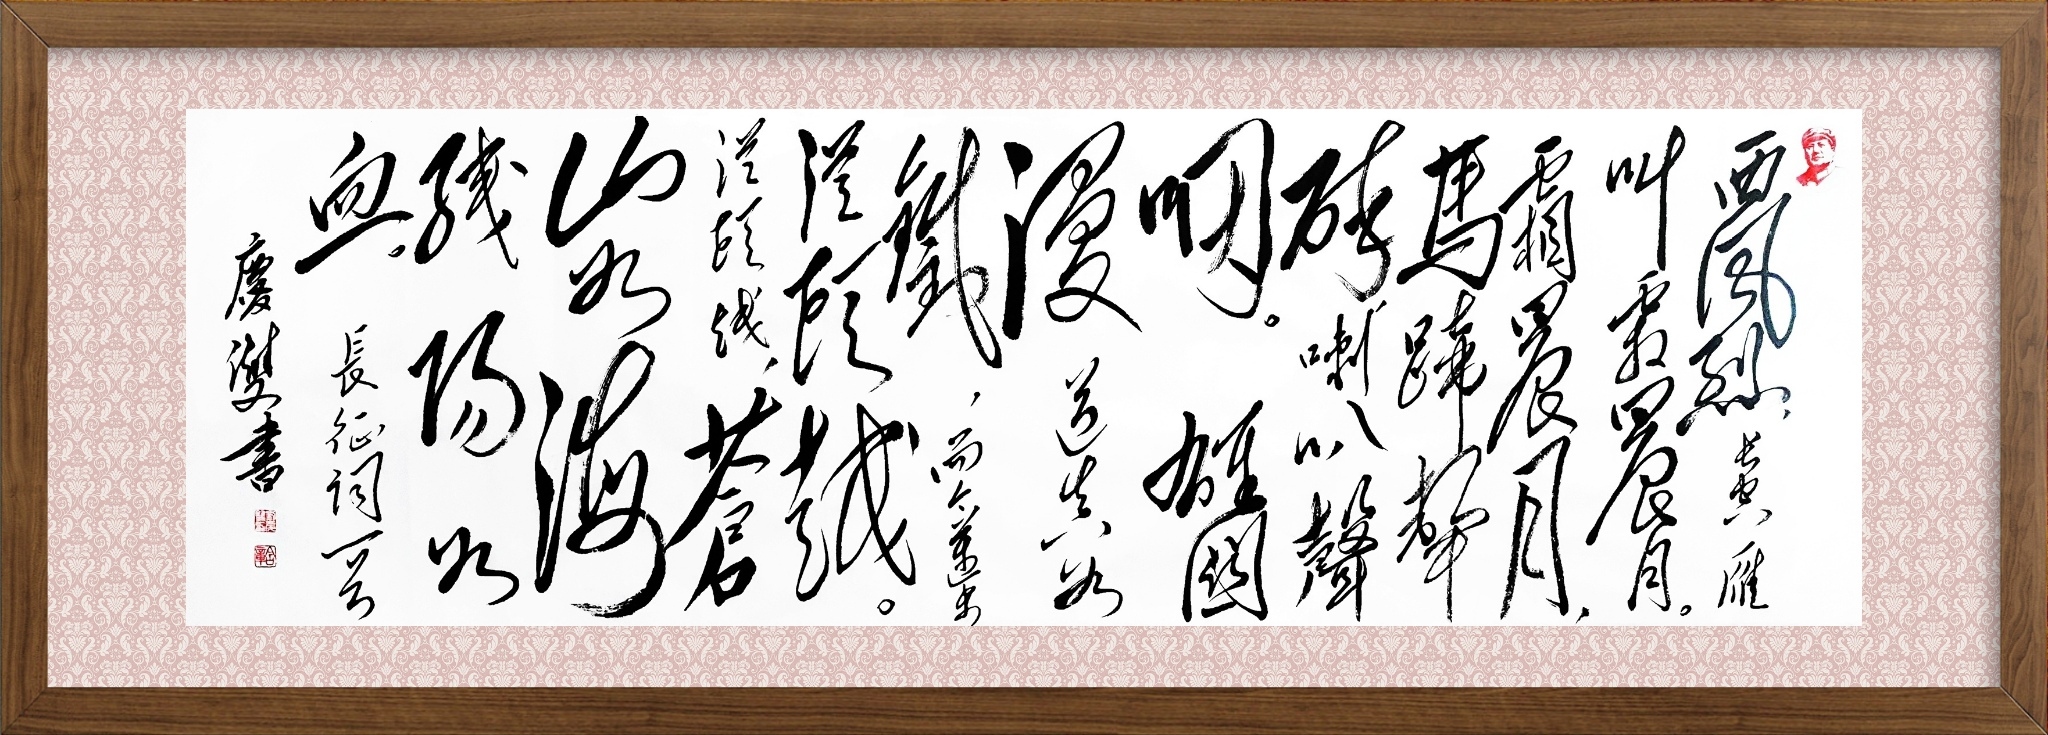 西風烈,長空雁
叫霜晨月。
霜晨月,
馬蹄聲
碎,喇叭聲
咽。雄關
漫道真如
鐵,而今邁步
從頭越。
從頭越,蒼
山如海
殘陽如
血。
長征詞一首
慶書